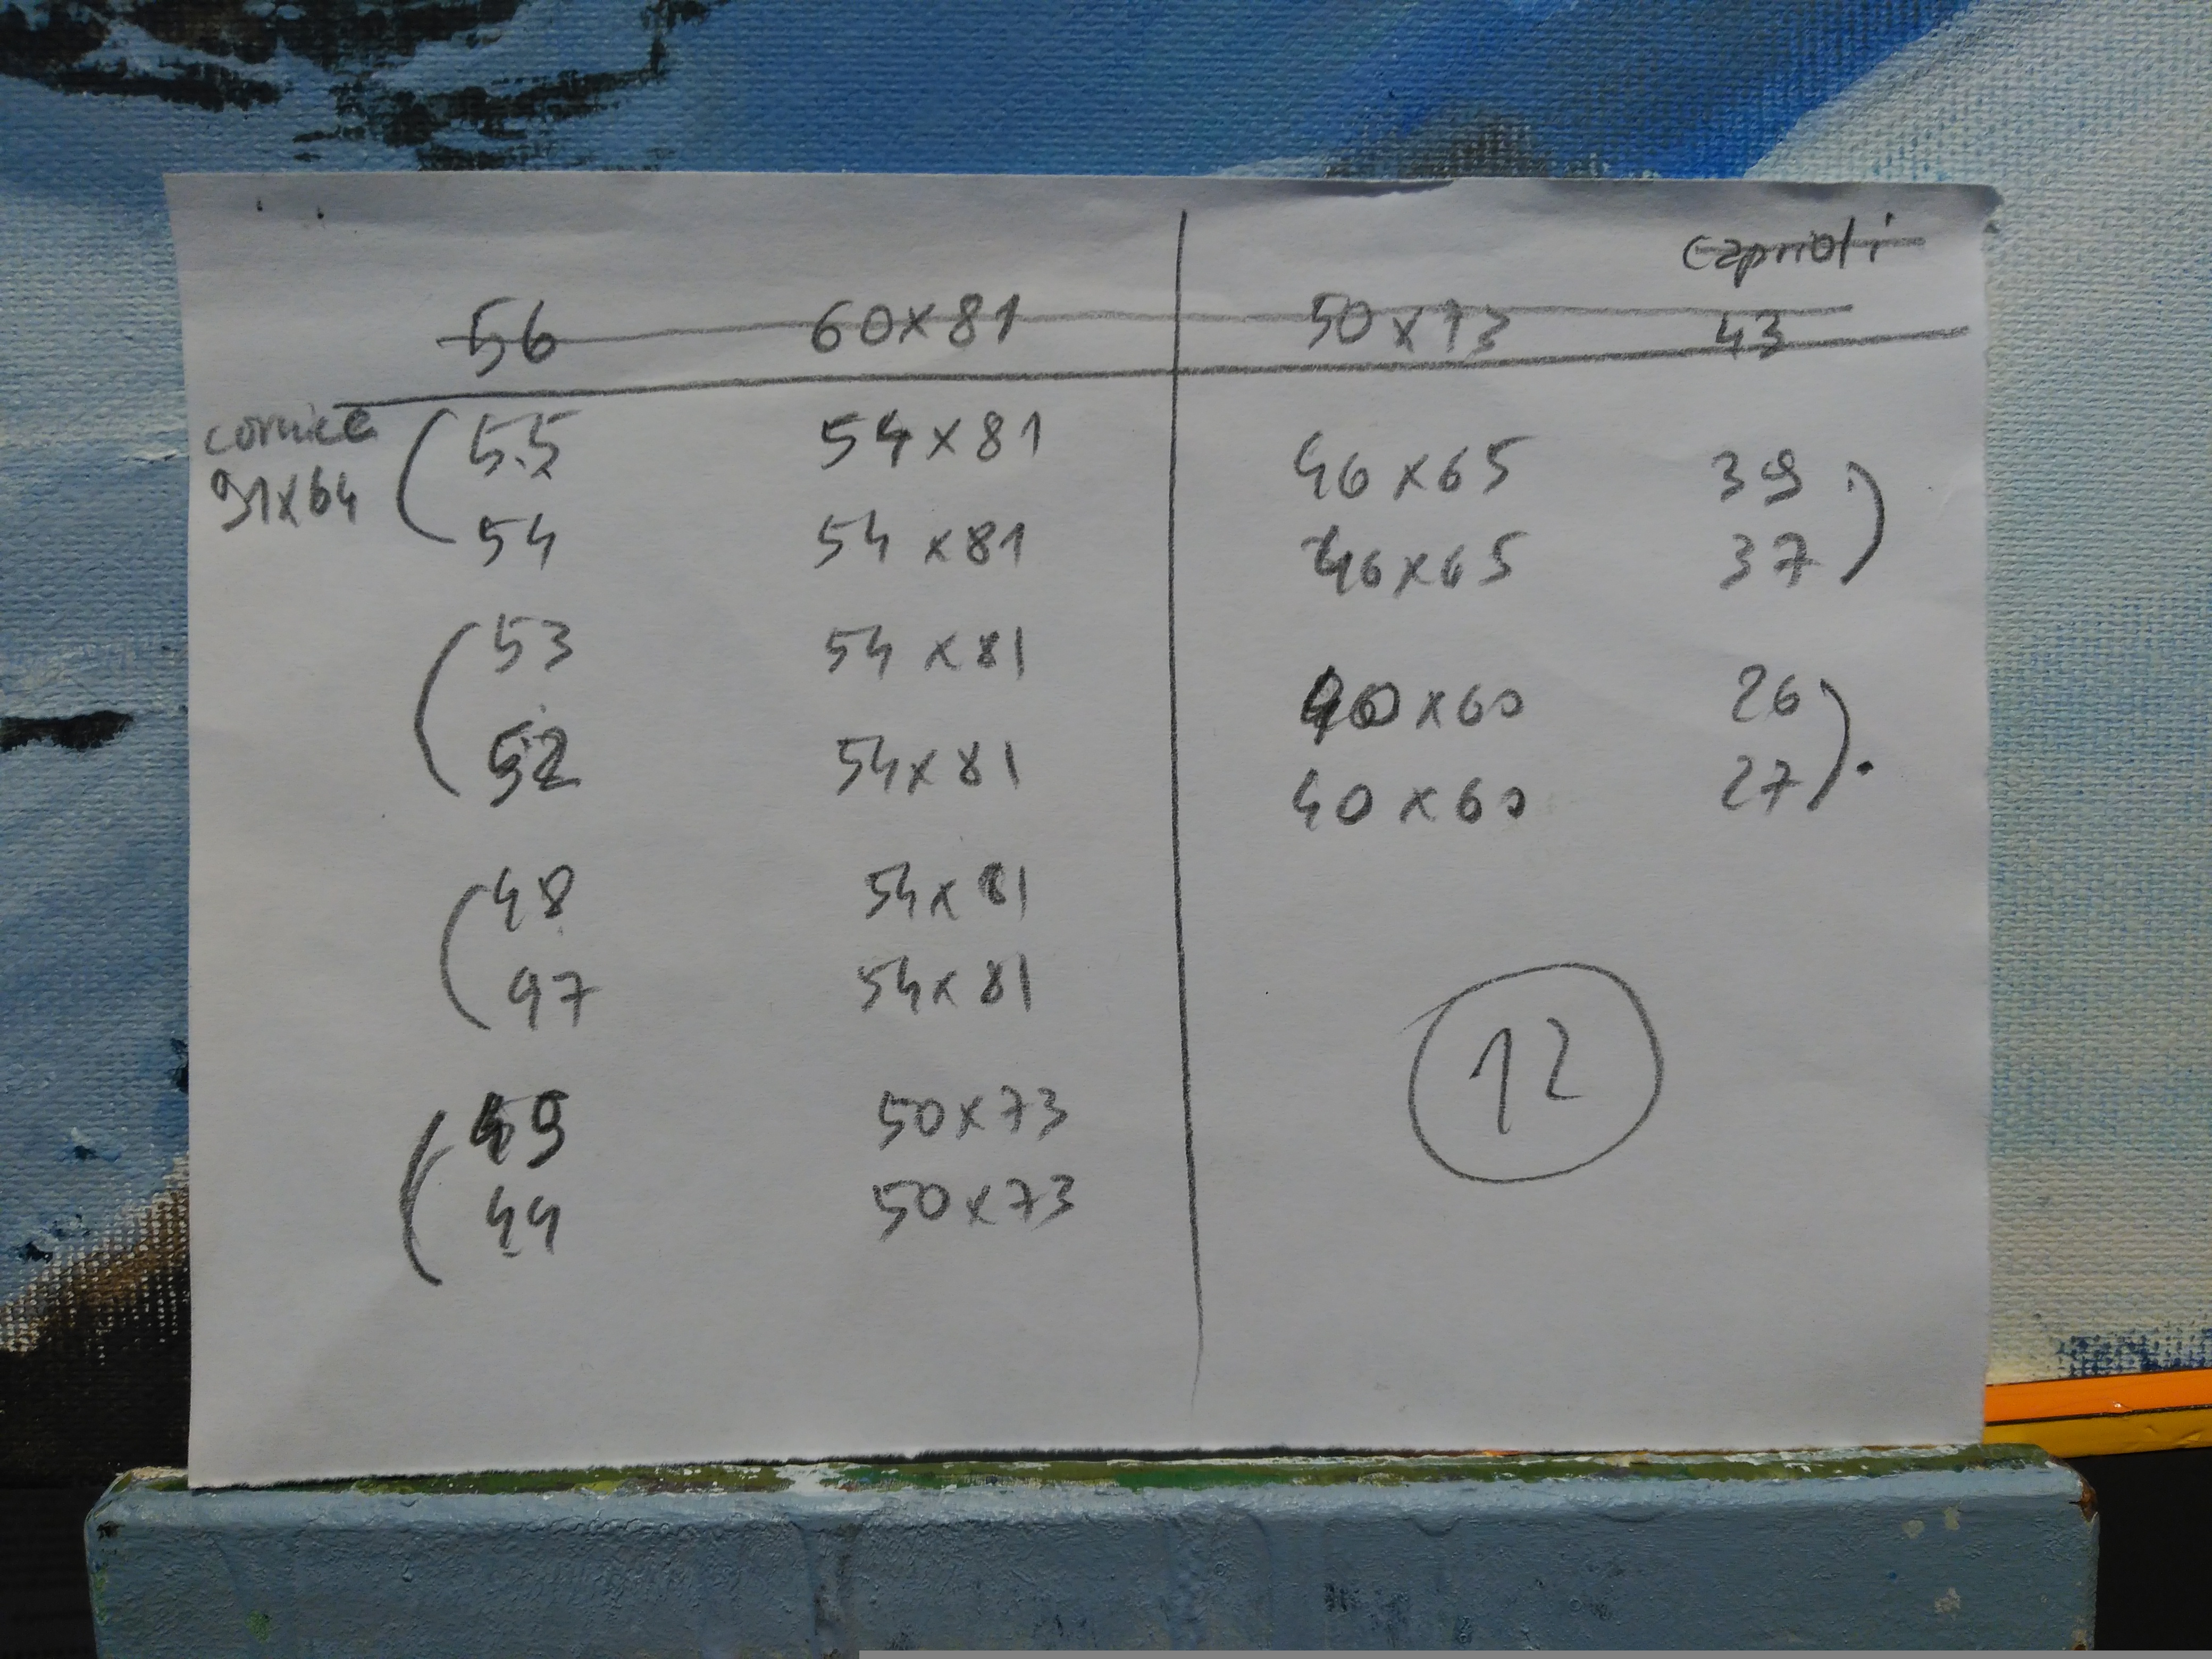 caprioli
56 60x81 50x73 43
cornice
91x64
55 54x81 46x65 39
54 54x81 46x65 37
53 54x81 40x60 26
52 54x81 40x60 27
48 54x81
47 54x81
12
50x73
44 50x73